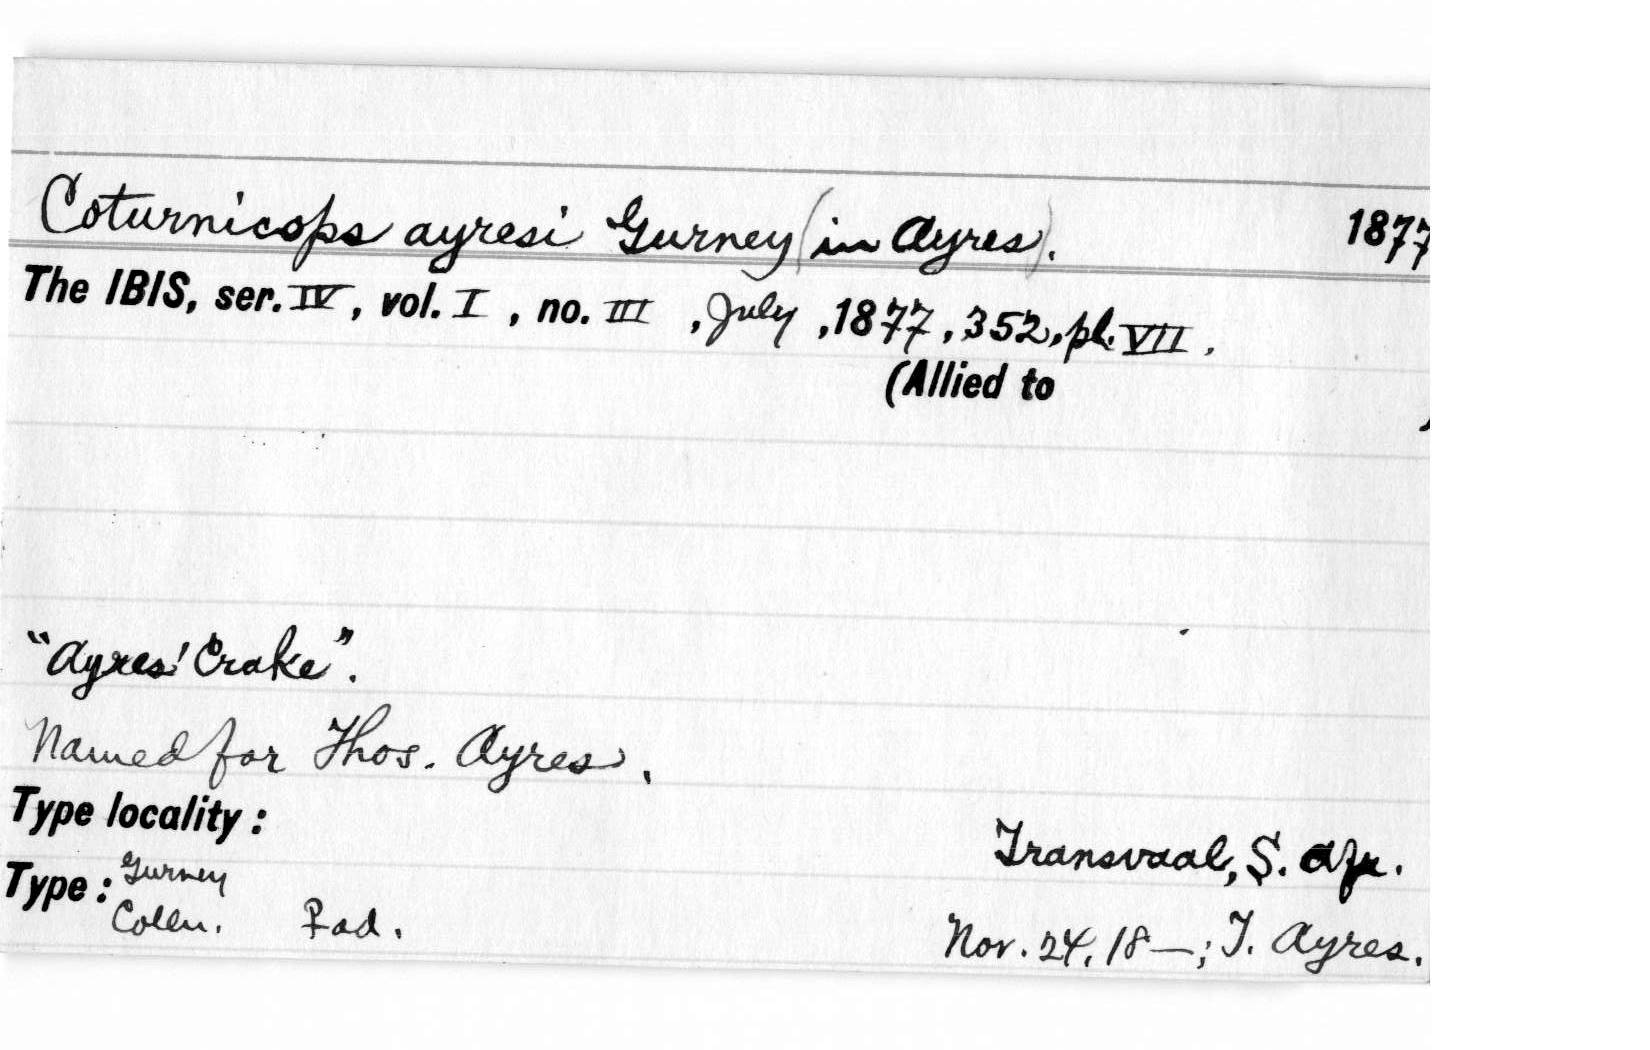 Coturnicops ayresi Gurney (in Ayres). 1877
The IBIS, ser. IV, vol. I, no. III, July, 1877, 352, pl. VII.
(Allied to )
"Ayres' Crake".
Named for Thos. Ayres.
Type locality: Transvaal, S. Afr.
Type: Gurney
Colln. ad. Nov. 24, 18—; T. Ayres.